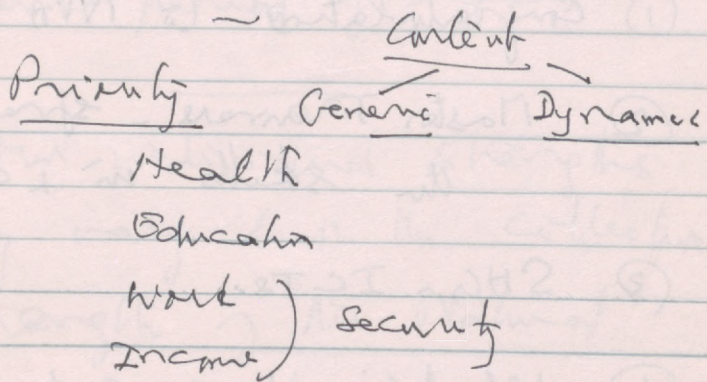 Content
Priority Generic Dynamic
Health
Education
Work
Income ) Security